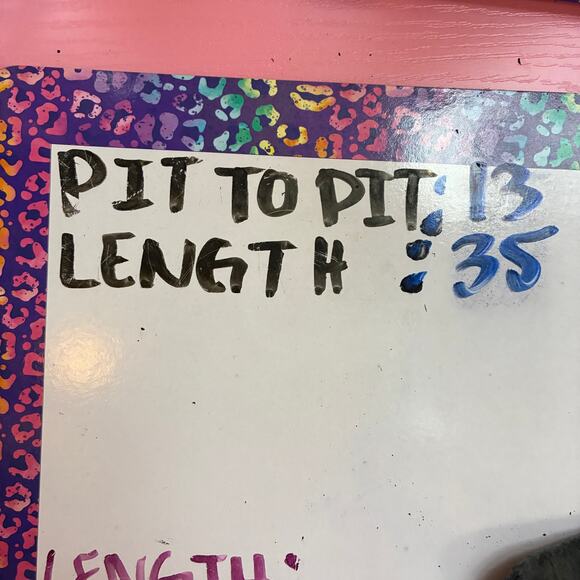 PIT TO PIT: 13
LENGTH : 35
LENGTH: